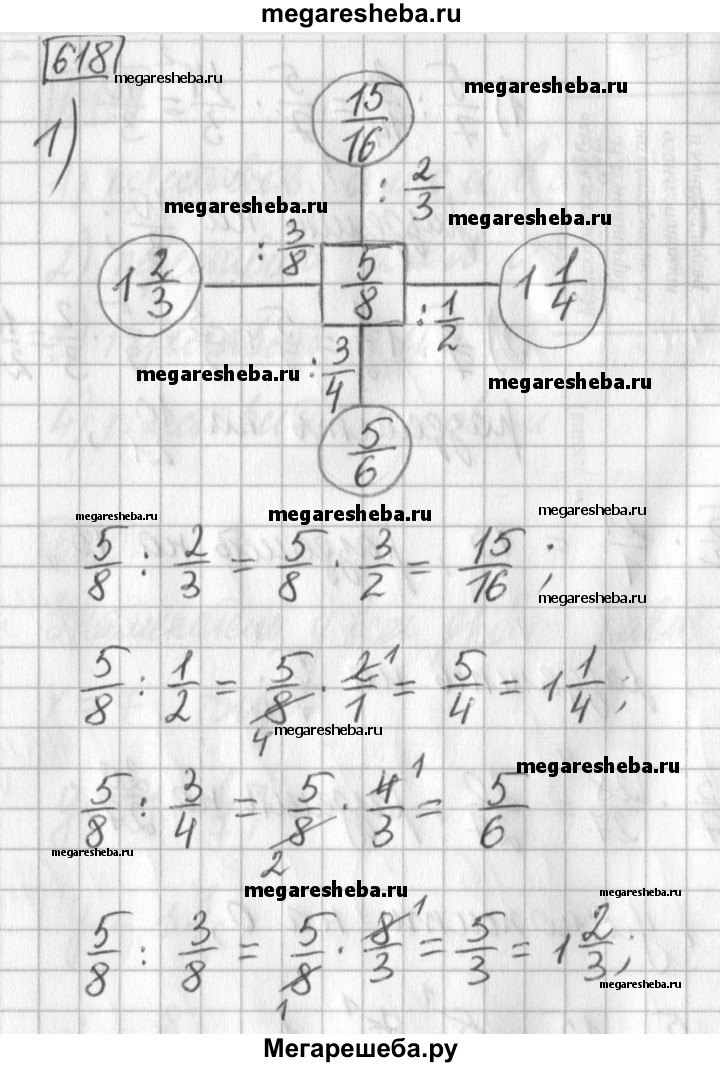 megaresheba.ru
618
megaresheba.ru
1)
15/16
megaresheba.ru
: 2/3
megaresheba.ru
megaresheba.ru
: 3/8
1 2/3
5/8
1 1/4
: 1/2
: 3/4
megaresheba.ru
megaresheba.ru
5/6
megaresheba.ru
megaresheba.ru
megaresheba.ru
5/8 : 2/3 = 5/8 · 3/2 = 15/16 ;
megaresheba.ru
5/8 : 1/2 = 5/8 4 · 2 1/1 = 5/4 = 1 1/4 ;
megaresheba.ru
megaresheba.ru
5/8 : 3/4 = 5/8 2 · 4 1/3 = 5/6
megaresheba.ru
megaresheba.ru
megaresheba.ru
5/8 : 3/8 = 5/8 1 · 8 1/3 = 5/3 = 1 2/3 ;
megaresheba.ru
Мегарешеба.ру